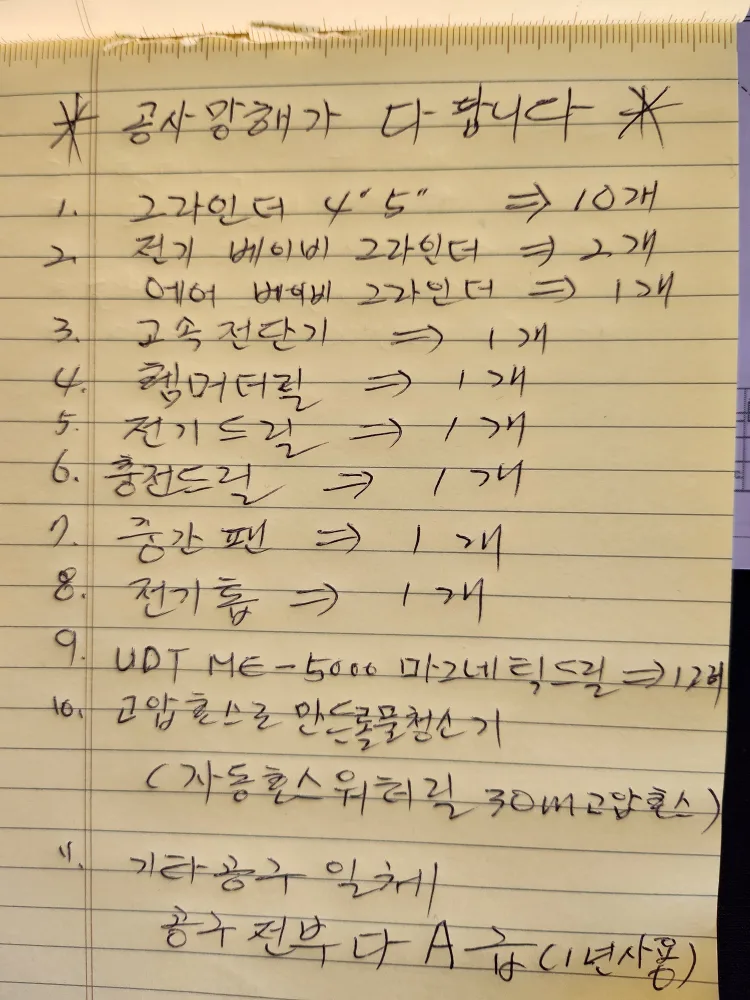 * 공사망해가 다 팝니다 *
1. 그라인더 4" 5" ⇒ 10개
2. 전기 베이비 그라인더 ⇒ 2개
에어 베이비 그라인더 ⇒ 1개
3. 고속전단기 ⇒ 1개
4. 헴머더릴 ⇒ 1개
5. 전기드릴 ⇒ 1개
6. 충전드릴 ⇒ 1개
7. 중간팬 ⇒ 1개
8. 전기톱 ⇒ 1개
9. UDT ME-5000 마그네틱드릴 ⇒ 1개
10. 고압호스로 만든물청소기
(자동호스워터릴 30m고압호스)
11. 기타공구 일체
공구전부다 A급 (1년사용)